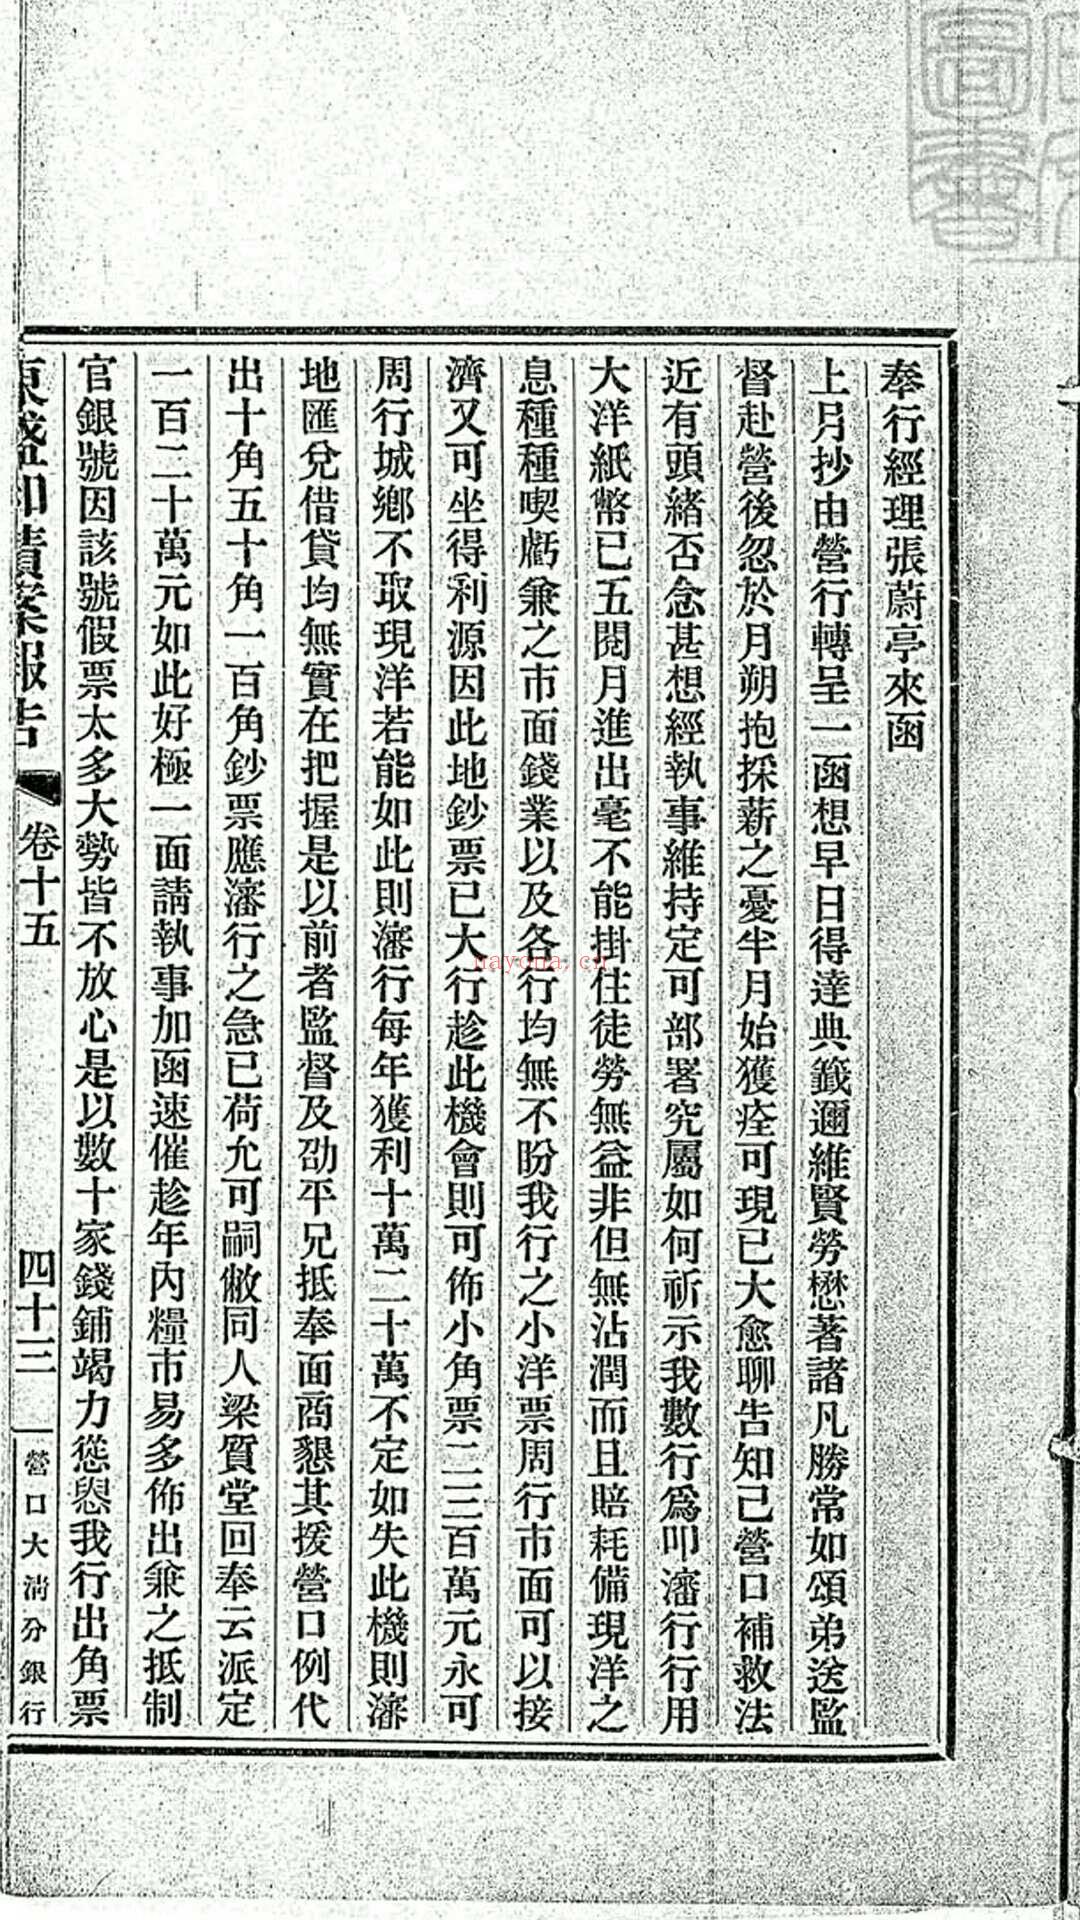 奉行經理張蔚亭來函
上月抄由營行轉呈一函想早日得達典籤邇維賢勞懋著諸凡勝常如頌弟送監
督赴營後忽於月朔抱採薪之憂半月始獲痊可現已大愈聊告知己營口補救法
近有頭緒否念甚想經執事維持定可部署究屬如何祈示我數行爲叩瀋行行用
大洋紙幣已五閱月進出毫不能掛住徒勞無益非但無沾潤而且賠耗備現洋之
息種種喫虧兼之市面錢業以及各行均無不盼我行之小洋票周行市面可以接
濟又可坐得利源因此地鈔票已大行趁此機會則可佈小角票二三百萬元永可
周行城鄉不取現洋若能如此則瀋行每年獲利十萬二十萬不定如失此機則瀋
地匯兌借貸均無實在把握是以前者監督及劭平兄抵奉面商懇其援營口例代
出十角五十角一百角鈔票應瀋行之急已荷允可嗣敝同人梁質堂回奉云派定
一百二十萬元如此好極一面請執事加函速催趁年內糧市易多佈出兼之抵制
官銀號因該號假票太多大勢皆不放心是以數十家錢鋪竭力慫恿我行出角票
東盛和債案報告 卷十五 四十三 營口大清分銀行
nayona.cn